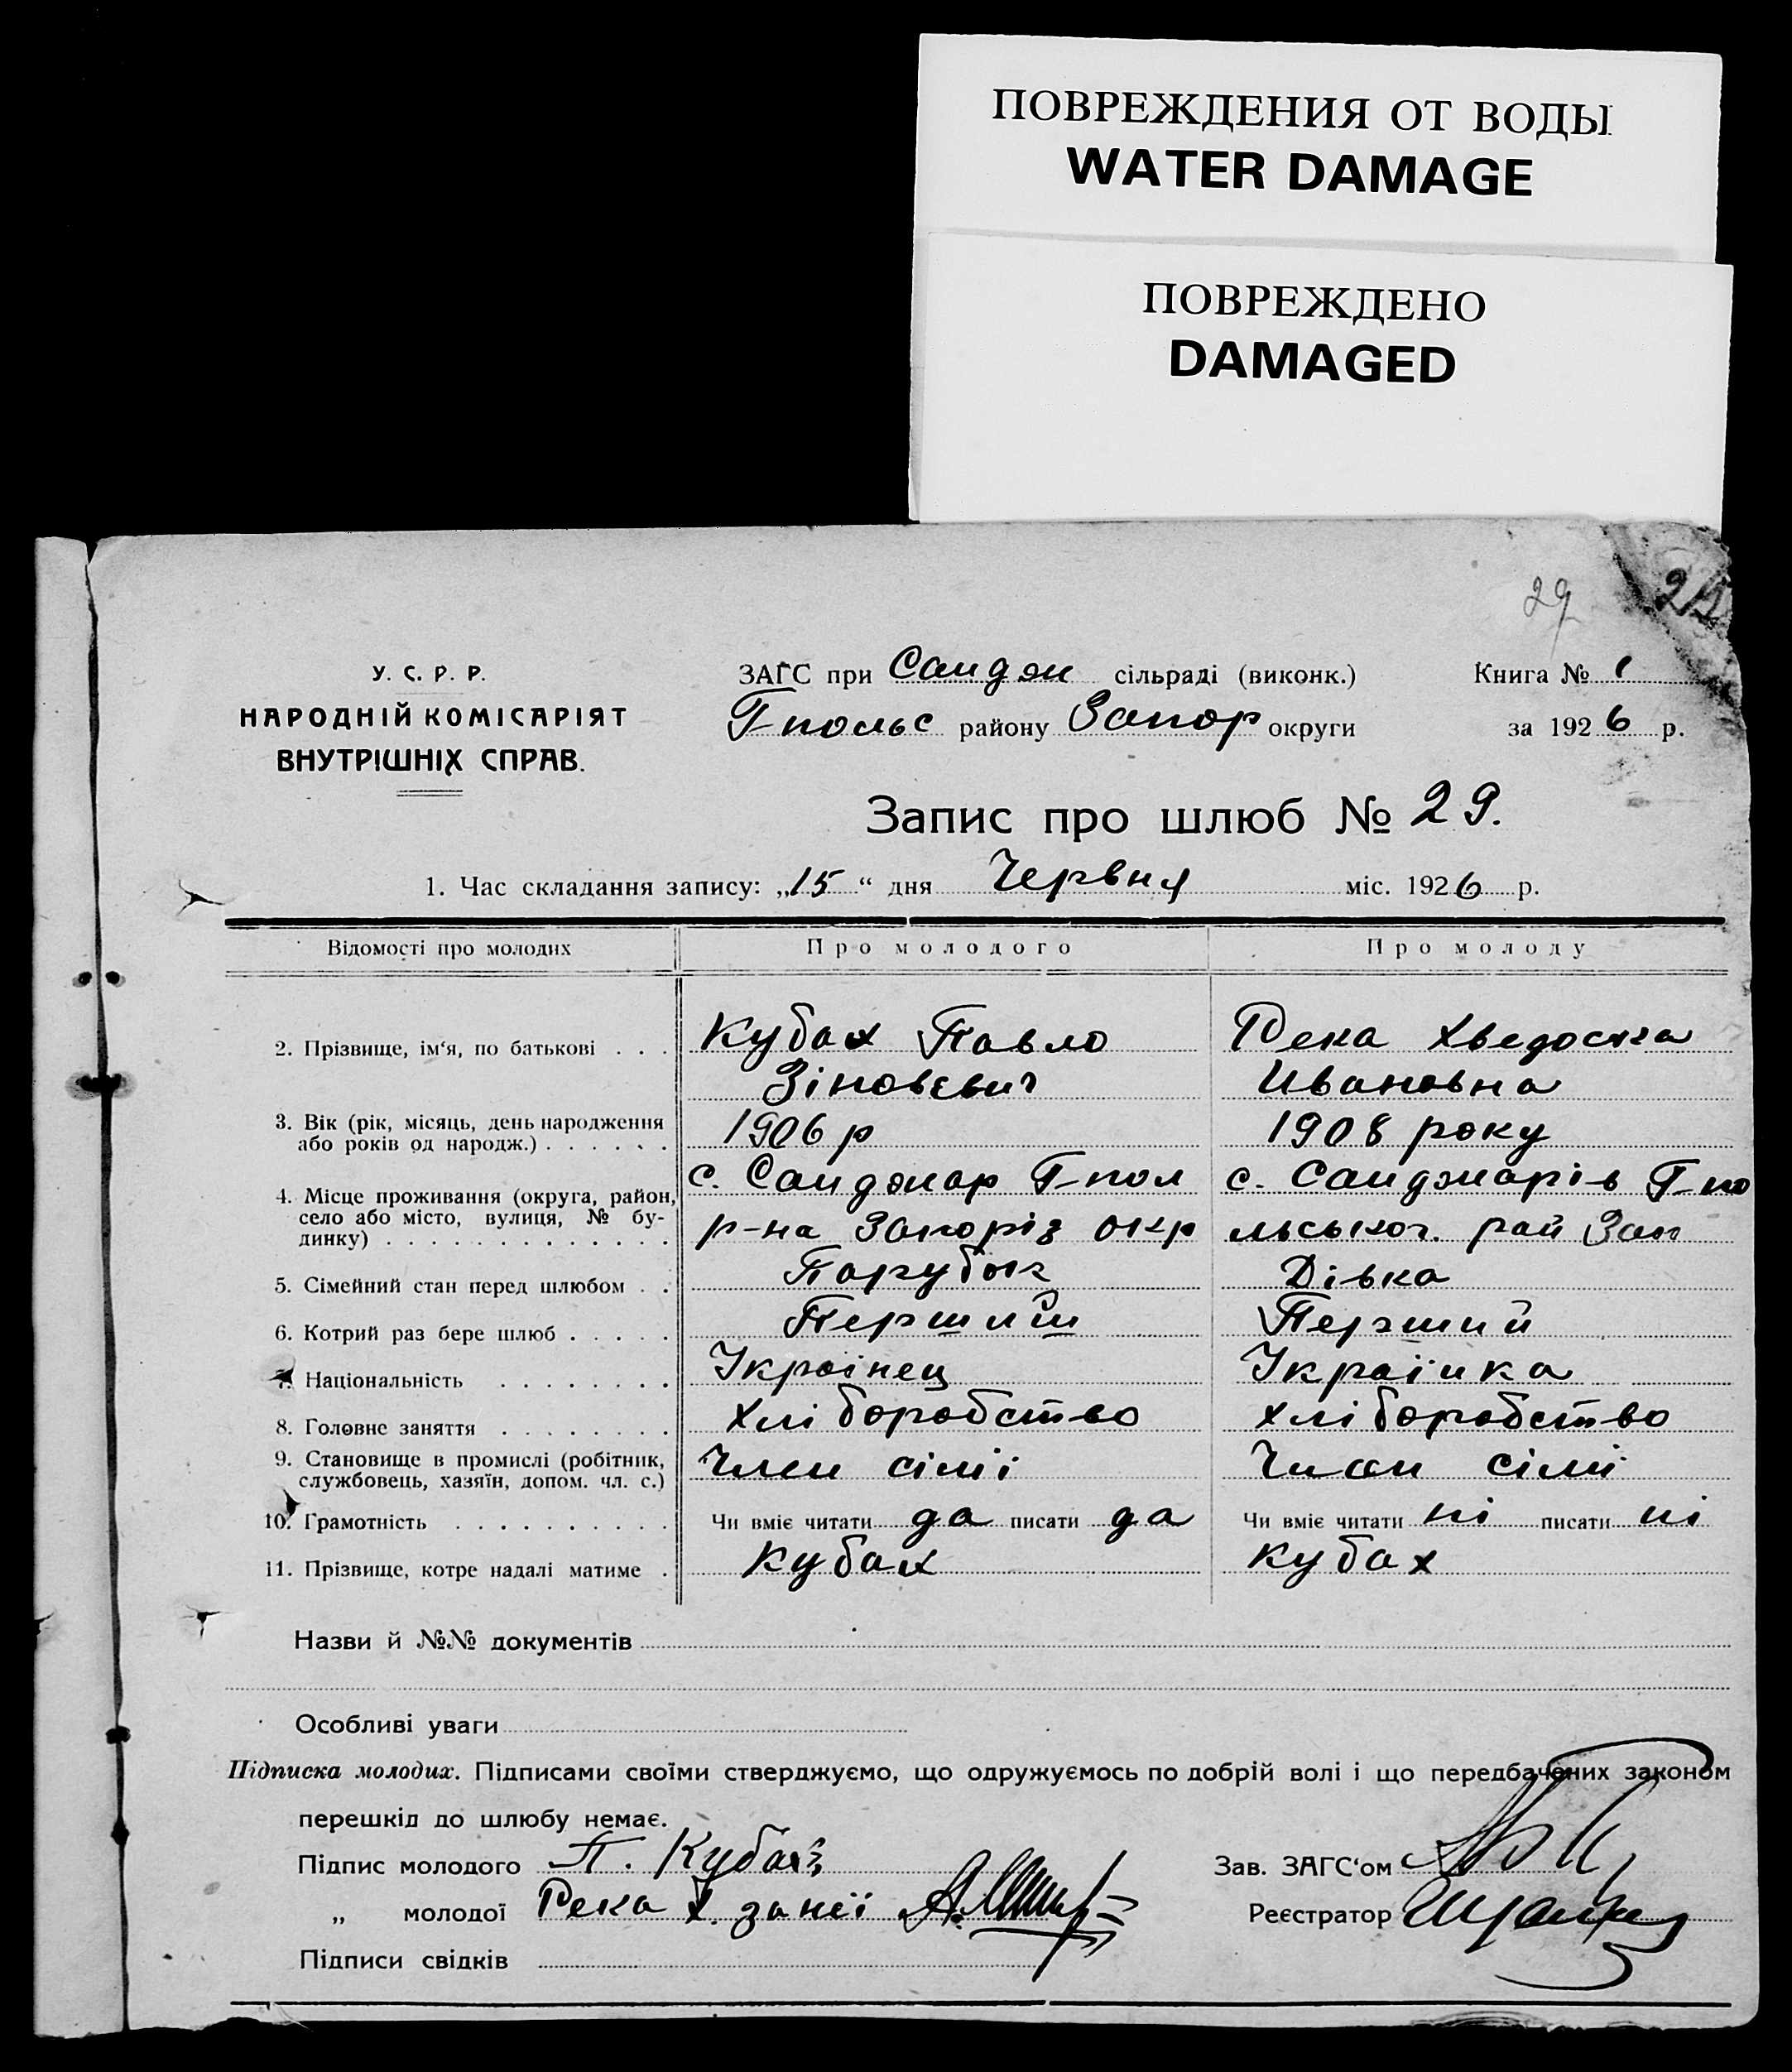 ПОВРЕЖДЕНИЯ ОТ ВОДЫ
WATER DAMAGE
ПОВРЕЖДЕНО
DAMAGED
29
У. С. Р. Р.
НАРОДНІЙ КОМІСАРІЯТ
ВНУТРІШНІХ СПРАВ.
ЗАГС при Сандж сільраді (виконк.) Книга № 1
Г-польс району Запор округи за 1926 р.
Запис про шлюб № 29.
1. Час складання запису: „15“ дня Червня міс. 1926 р.
Відомості про молодих Про молодого Про молоду
2. Прізвище, ім‘я, по батькові . . . Кубах Павло Река Хведоска
Зіновєвич Ивановна
3. Вік (рік, місяць, день народження
або років од народж.) . . . . . . 1906 р 1908 року
с. Санджар Г-пол с. Санджарів Г-по
4. Місце проживання (округа, район,
село або місто, вулиця, № бу-
динку) . . . . . . . . . . . . . р-на Запоріз окр льськог. рай Зап
5. Сімейний стан перед шлюбом . . Парубок Дівка
6. Котрий раз бере шлюб . . . . . Перший Перший
7. Національність . . . . . . . . Украінец Украінка
8. Головне заняття . . . . . . . . хліборобство хліборобство
9. Становище в промислі (робітник,
службовець, хазяїн, допом. чл. с.) Член сімі Член сімі
10. Грамотність . . . . . . . . . . Чи вміє читати да писати да Чи вміє читати ні писати ні
11. Прізвище, котре надалі матиме . Кубах Кубах
Назви й №№ документів
Особливі уваги
Підписка молодих. Підписами своїми стверджуємо, що одружуємось по добрій волі і що передбачених законом
перешкід до шлюбу немає.
Підпис молодого П. Кубах Зав. ЗАГС‘ом
„ молодої Река Х. за неї Реєстратор
Підписи свідків